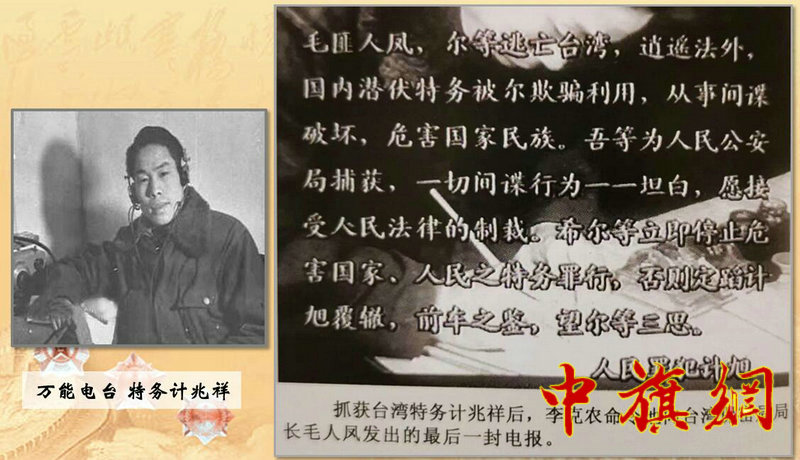 万能电台 特务计兆祥
毛匪人凤，尔等逃亡台湾，逍遥法外，
国内潜伏特务被尔欺骗利用，从事间谍
破坏，危害国家民族。吾等为人民公安
局捕获，一切间谍行为一一坦白，愿接
受人民法律的制裁。希尔等立即停止危
害国家、人民之特务罪行，否则定蹈计
旭覆辙，前车之鉴，望尔等三思。
人民罪犯计旭
抓获台湾特务计兆祥后，李克农命
局
长毛人凤发出的最后一封电报。
中旗網